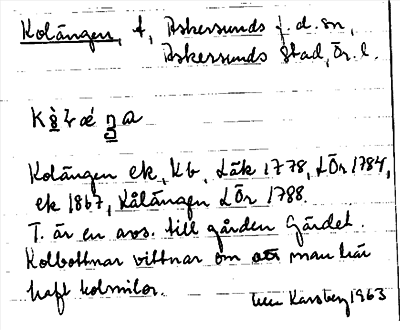 Kolängen, t, Askersunds f.d. sn,
Askersunds stad, Ör. l.
Kolängen ek, Kb, Läk 1778, LÖr 1784,
ek 1867, Kålängen LÖr 1788.
T. är en avs. till gården Gärdet.
Kolbottnar vittnar om att man här
haft kolmilor.
Karsberg 1963